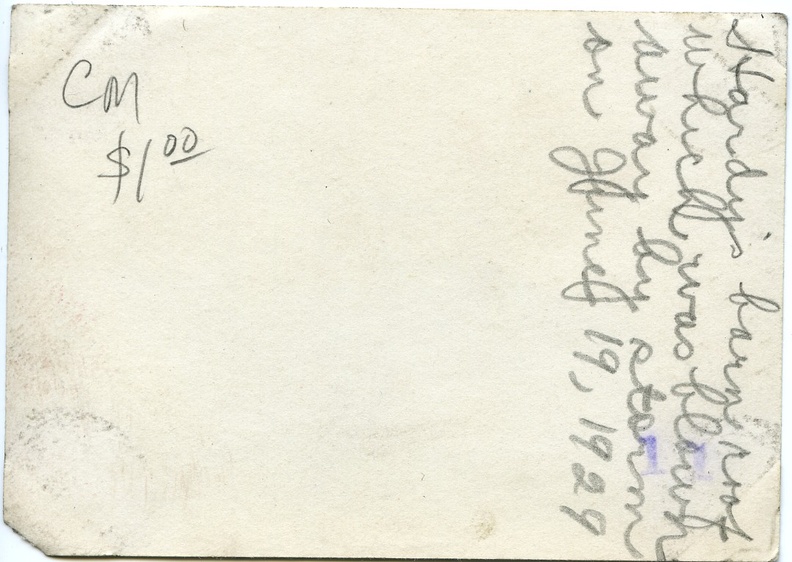 CM
$1.00
Hardy's barn roof
which was blown
away by storm
on June 19, 1929
11